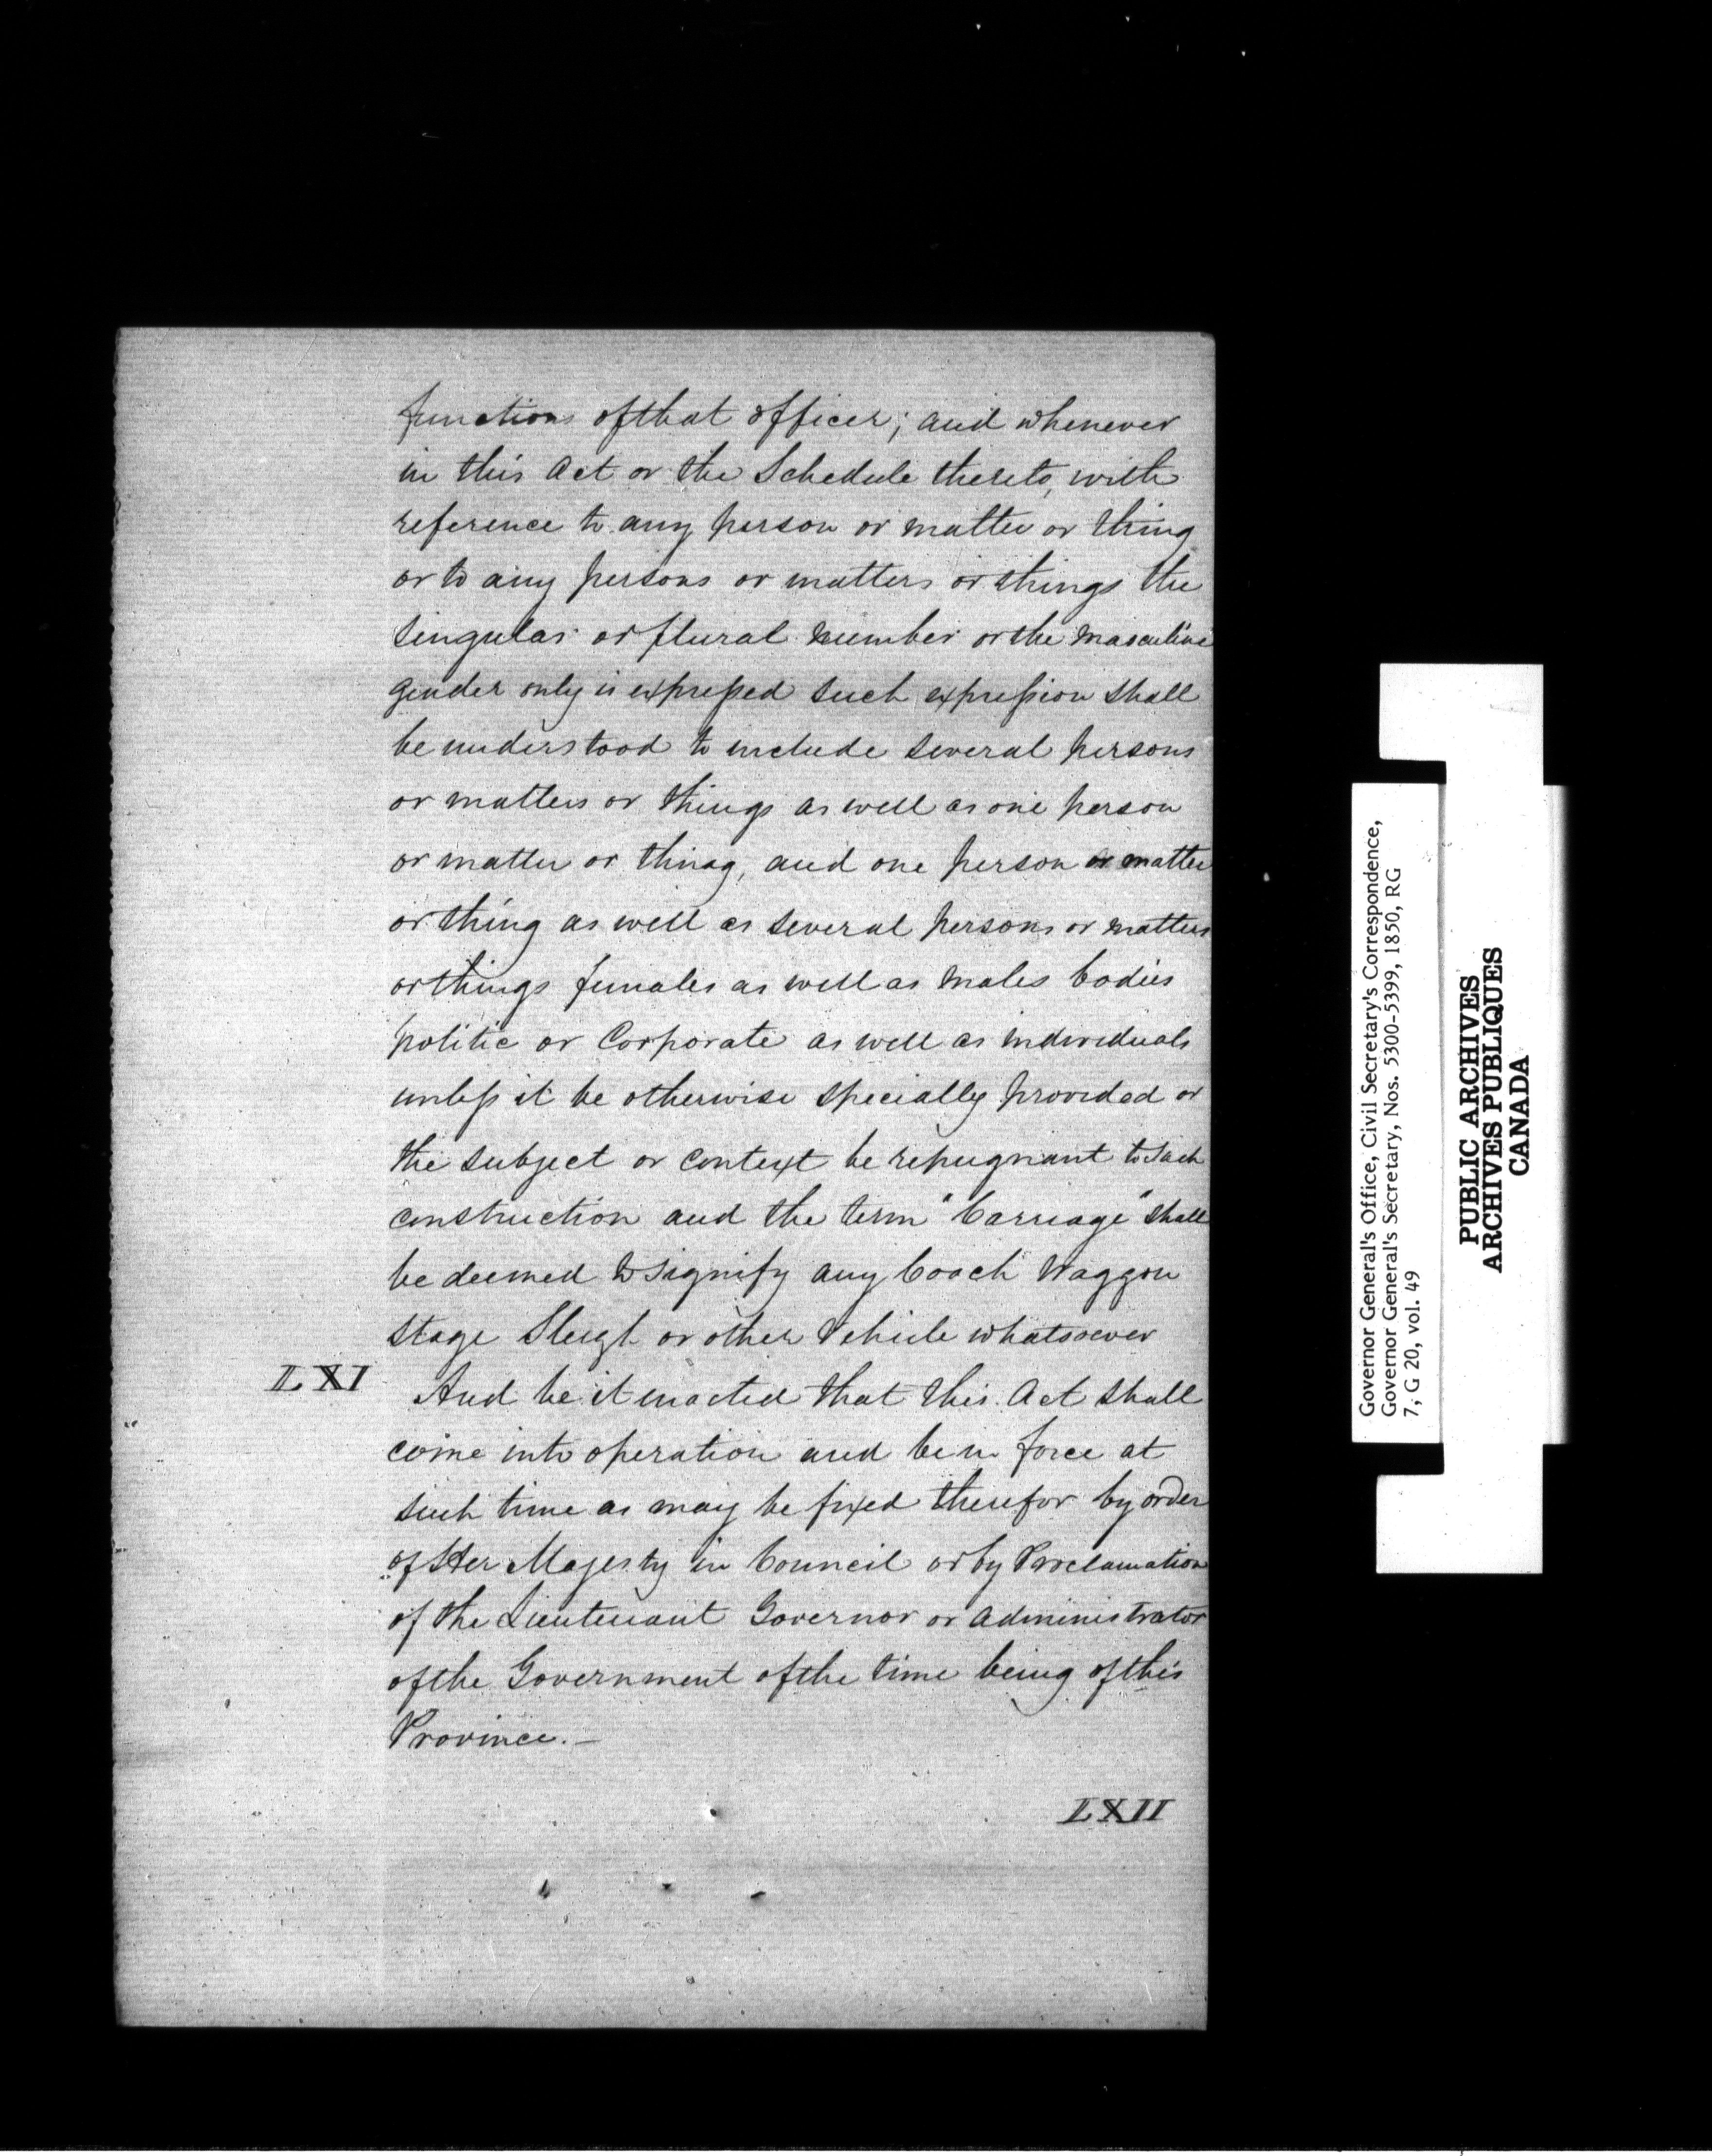 functions of that officer; and whenever
in this Act or the Schedule thereto, with
reference to any person or matter or thing
or to any persons or matters or things the
singular or plural number or the masculine
gender only is expressed such expression shall
be understood to include several persons
or matters or things as well as one person
or matter or thing, and one person or matter
or thing as well as several persons or matters
or things females as well as males bodies
politic or Corporate as well as individuals
unless it be otherwise specially provided or
the subject or context be repugnant to such
construction and the term "Carriage" shall
be deemed to signify any Coach Waggon
Stage Sleigh or other Vehicle whatsoever
LXI And be it enacted that this Act shall
come into operation and be in force at
such time as may be fixed therefor by order
of Her Majesty in Council or by Proclamation
of the Lieutenant Governor or Administrator
of the Government of the time being of this
Province.—
LXII
Governor General's Office, Civil Secretary's Correspondence,
Governor General's Secretary, Nos. 5300-5399, 1850, RG
7, G 20, vol. 49
PUBLIC ARCHIVES
ARCHIVES PUBLIQUES
CANADA